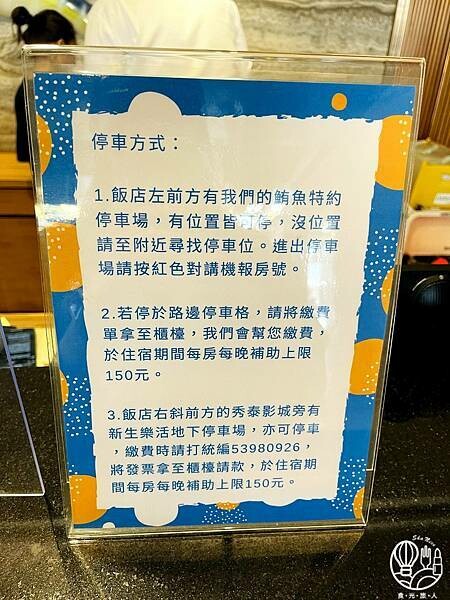 停車方式：
1.飯店左前方有我們的鮪魚特約
停車場，有位置皆可停，沒位置
請至附近尋找停車位。進出停車
場請按紅色對講機報房號。
2.若停於路邊停車格，請將繳費
單拿至櫃檯，我們會幫您繳費，
於住宿期間每房每晚補助上限
150元。
3.飯店右斜前方的秀泰影城旁有
新生樂活地下停車場，亦可停車
，繳費時請打統編53980926，
將發票拿至櫃檯請款，於住宿期
間每房每晚補助上限150元。
食·光·旅·人